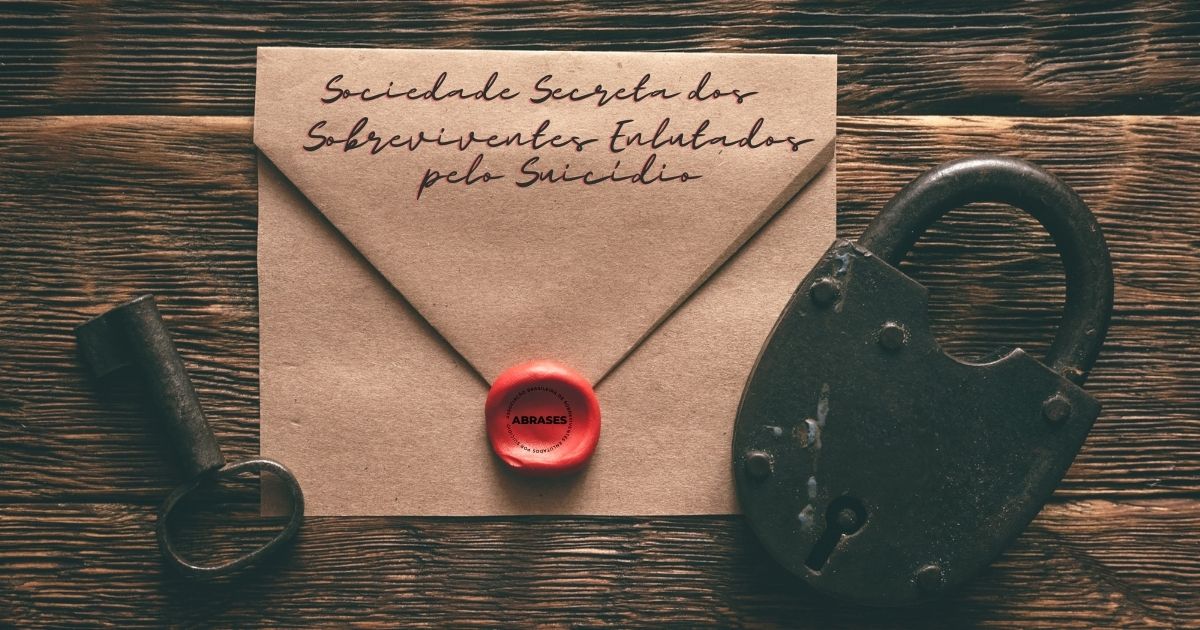 Sociedade Secreta dos
Sobreviventes Enlutados
pelo Suicídio
ABRASES
ASSOCIAÇÃO BRASILEIRA DE SOBREVIVENTES ENLUTADOS POR SUICÍDIO